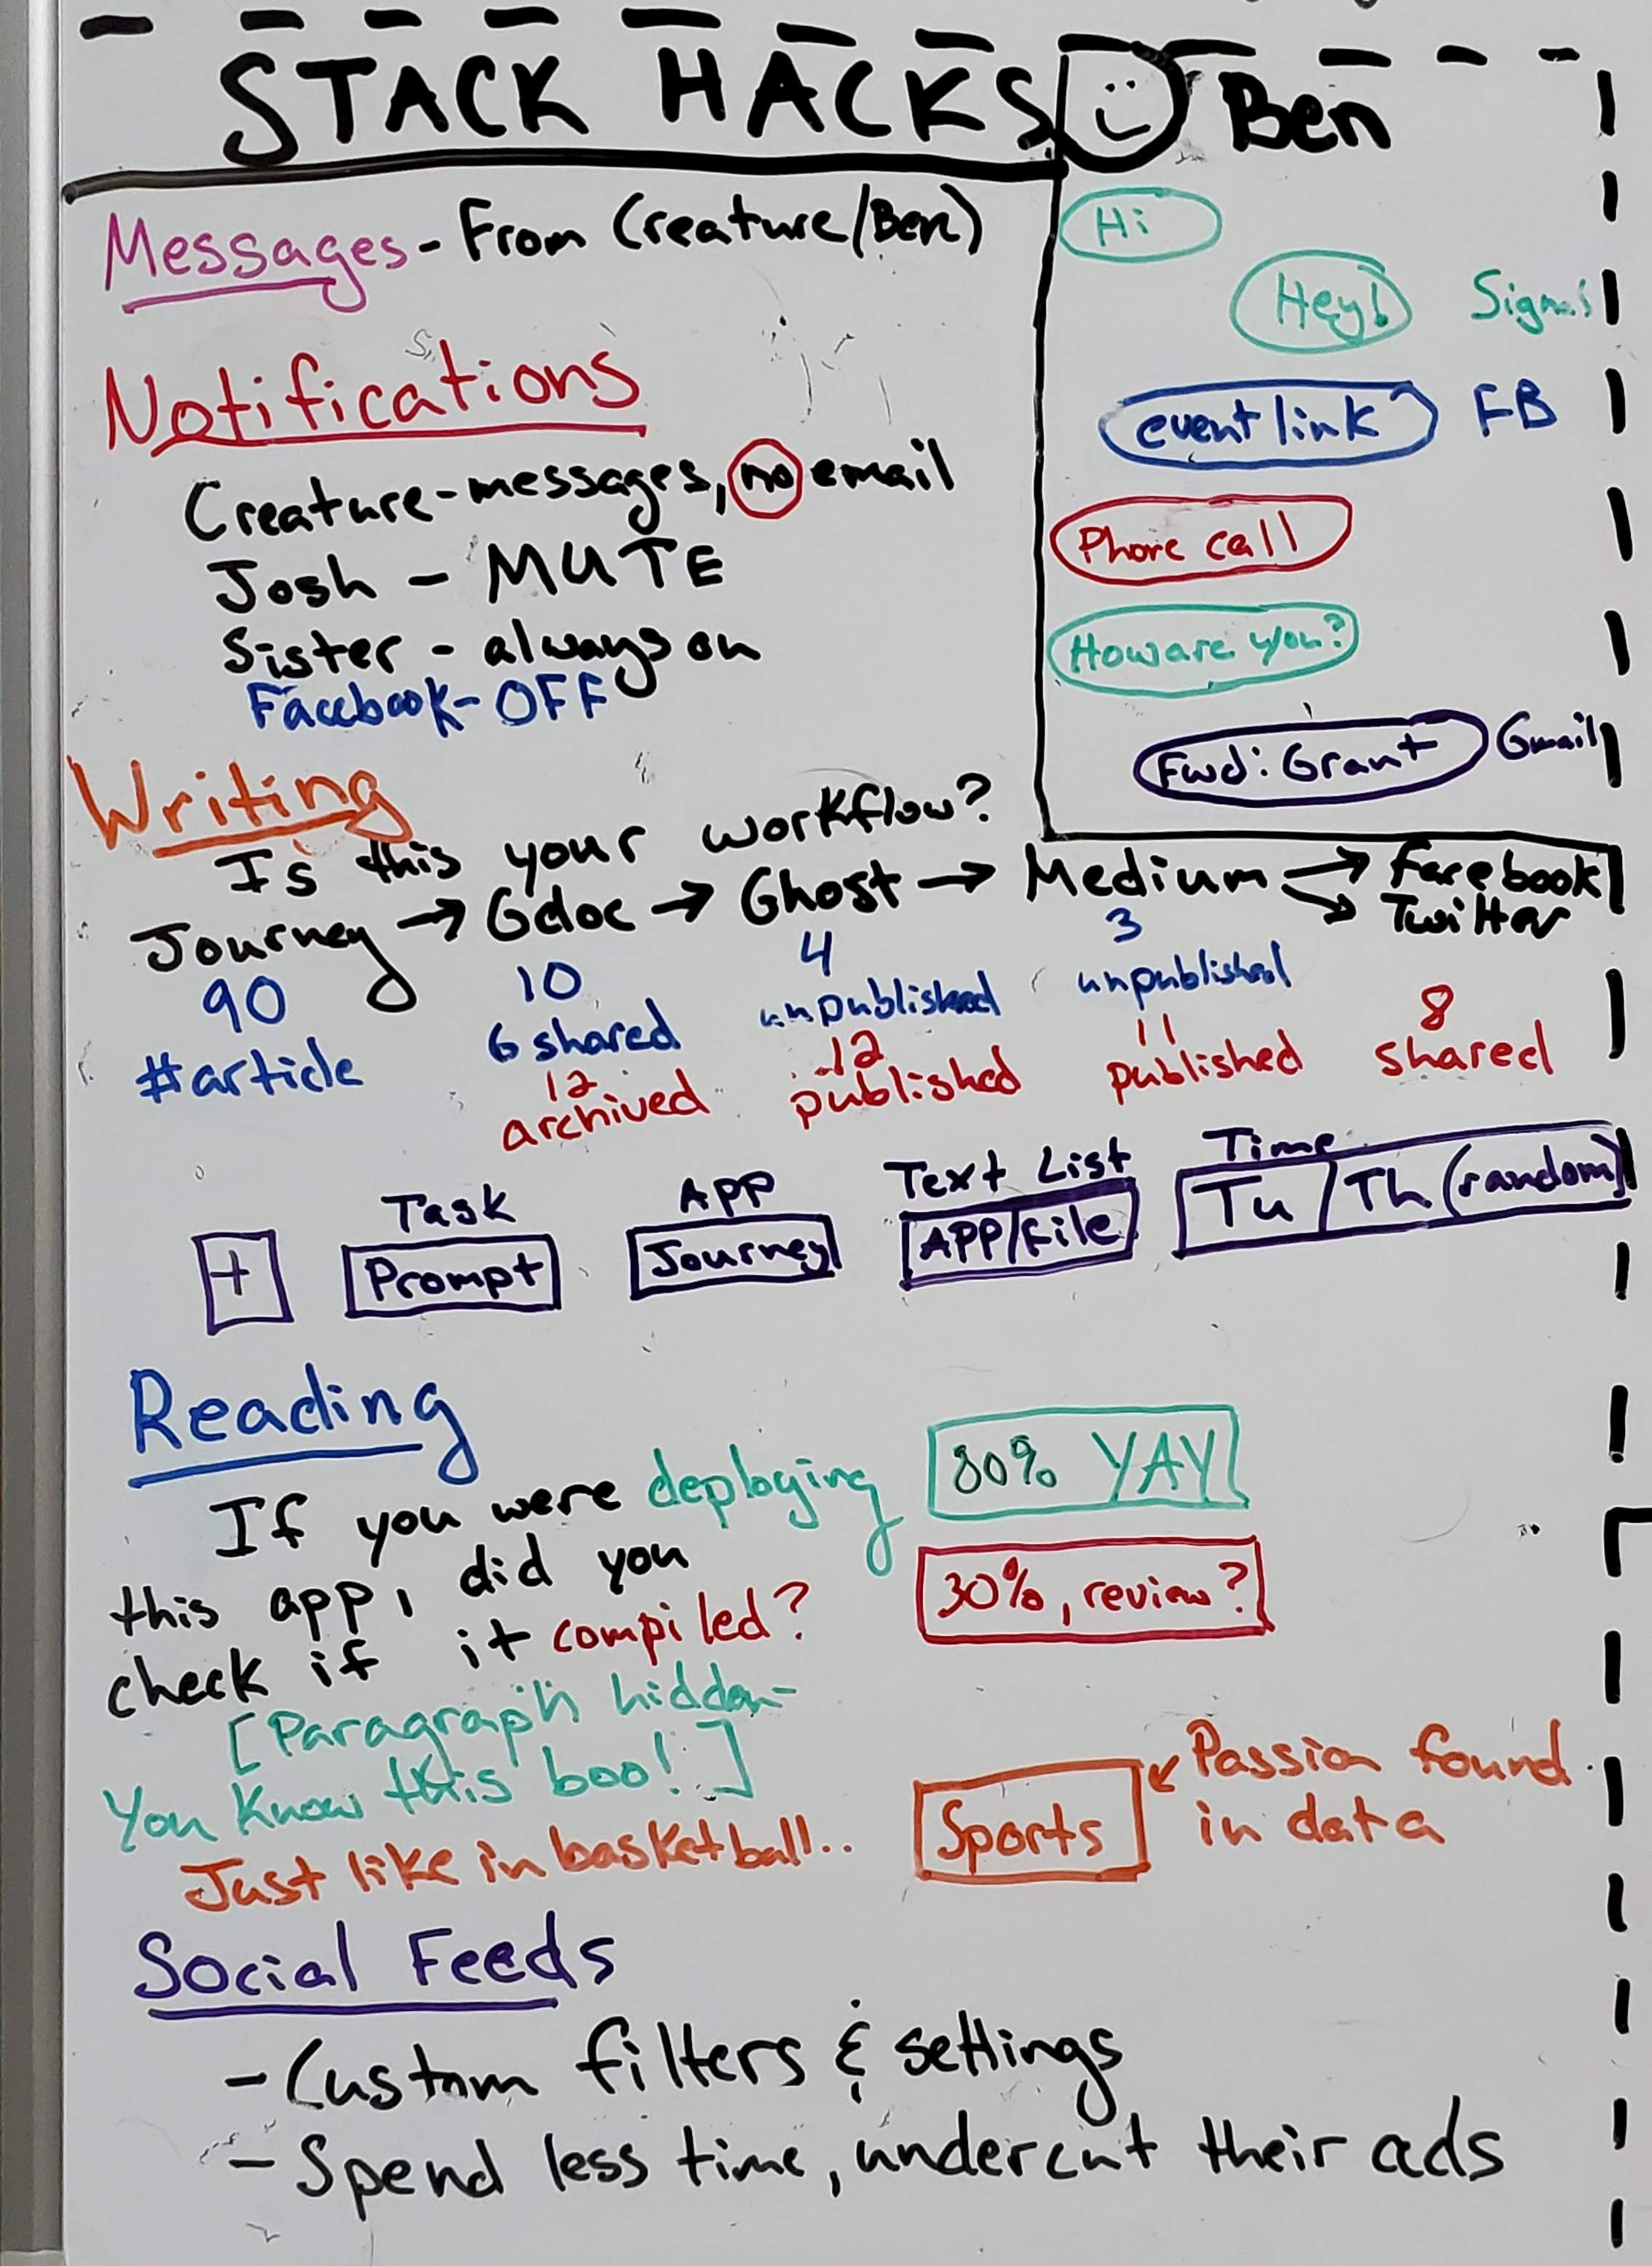 STACK HACKS
Ben
Messages - From Creature/Ben)
Hi
Hey! Signal
event link FB
Phone call
How are you?
Fwd: Grant Gmail
Notifications
Creature-messages, no email
Josh - MUTE
Sister - always on
Facebook - OFF
Writing
Is this your workflow?
Journey → Gdoc → Ghost → Medium → Facebook
→ Twitter
90
#article
10
6 shared
12
archived
4
unpublished
12
published
3
unpublished
11
published
8
shared
Task
APP
Text List
Time
+
Prompt
Journey
APP/File
Tu / Th (random)
Reading
If you were deploying
this app, did you
check if it compiled?
[Paragraph hidden-
You know this boo!]
Just like in basketball..
80% YAY
30%, review?
Sports
Passion found
in data
Social Feeds
- Custom filters & settings
- Spend less time, undercut their ads